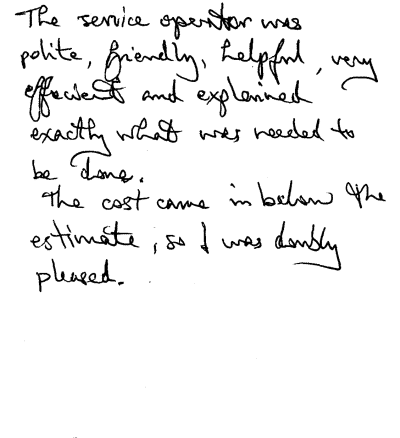 The service operator was
polite, friendly, helpful, very
efficient and explained
exactly what was needed to
be done.
The cost came in below the
estimate, so I was doubly
pleased.